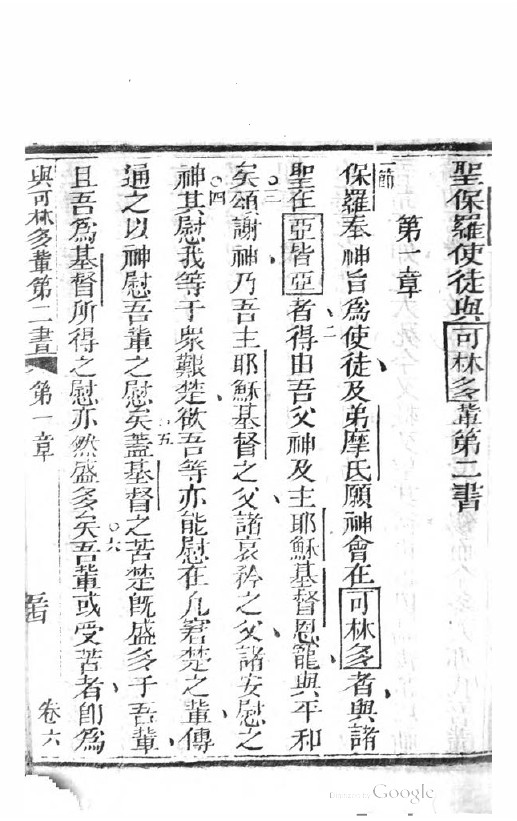 聖保羅使徒與可林多輩第二書
第一章
一節
保羅奉神旨爲使徒及弟摩氐願神會在可林多者、與諸
聖在亞皆亞者、二得由吾父神及主耶穌基督恩寵、與平和
矣。三頌謝神乃吾主耶穌基督之父、諸哀矜之父、諸安慰之
神。四其慰我等于衆艱楚、欲吾等亦能慰在凡窘楚之輩、傳
通之以神慰吾輩之慰矣。五蓋基督之苦楚旣盛多于吾輩、
且吾爲基督所得之慰亦然盛多矣。六吾輩或受苦者、卽爲
與可林多輩第二書 第一章 卷六
Digitized by Google